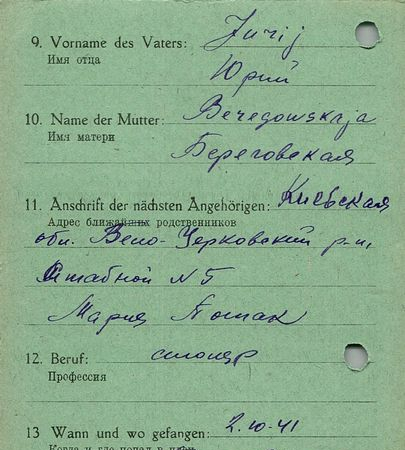 9. Vorname des Vaters: Jurij
Имя отца
Юрий
10. Name der Mutter: Beregowskaja
Имя матери
Береговская
11. Anschrift der nächsten Angehörigen: Киевская
Адрес ближайших родственников
обл. Бело-Церковский р-н,
Штабной N 5
Мария
12. Beruf: столяр
Профессия
13 Wann und wo gefangen: 2.10-41
Когда и где попал в плен